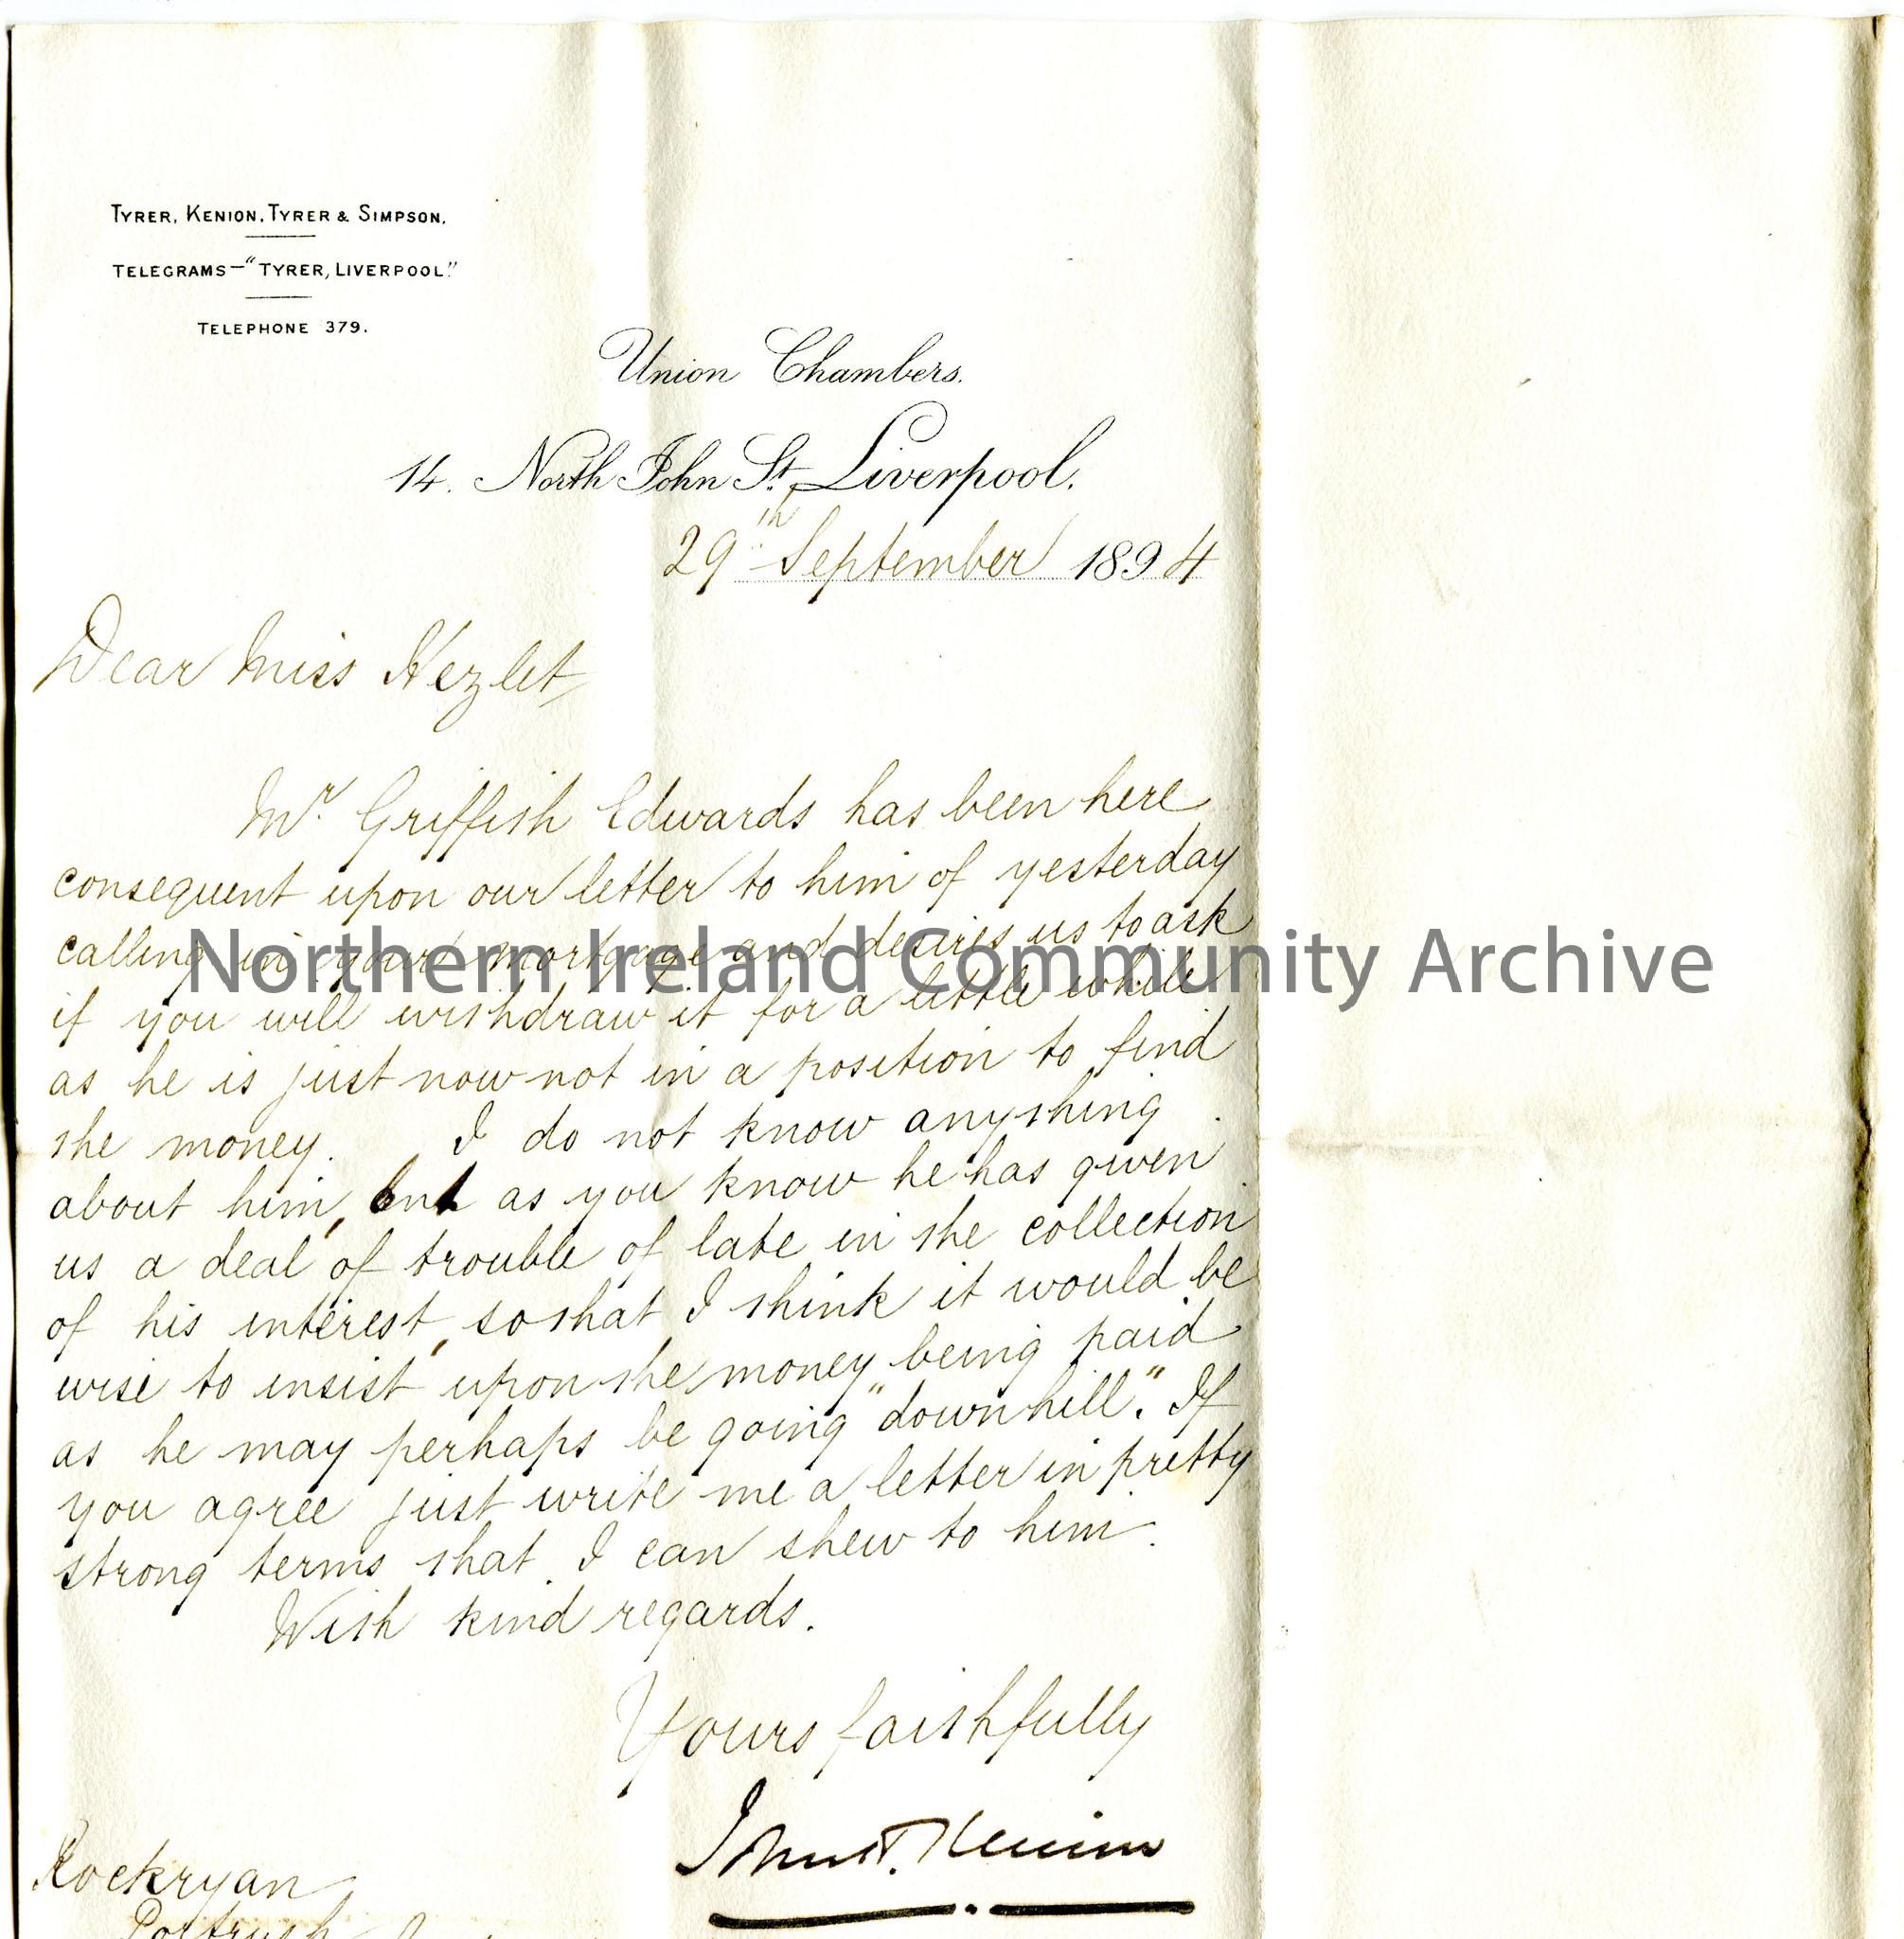 TYRER, KENION, TYRER & SIMPSON.
TELEGRAMS—"TYRER, LIVERPOOL."
TELEPHONE 379.
Union Chambers.
14. North John St. Liverpool.
29th September 1894
Dear Miss Hezlet,
Mr. Griffith Edwards has been here
consequent upon our letter to him of yesterday
calling in your mortgage and desires us to ask
if you will withdraw it for a little while
as he is just now not in a position to find
the money. I do not know anything
about him, but as you know he has given
us a deal of trouble of late in the collection
of his interest, so that I think it would be
wise to insist upon the money being paid
as he may perhaps be going "downhill". If
you agree just write me a letter in pretty
strong terms that I can shew to him.
With kind regards.
Yours faithfully
John T. Kenion
Rockryan
Portrush
Northern Ireland Community Archive